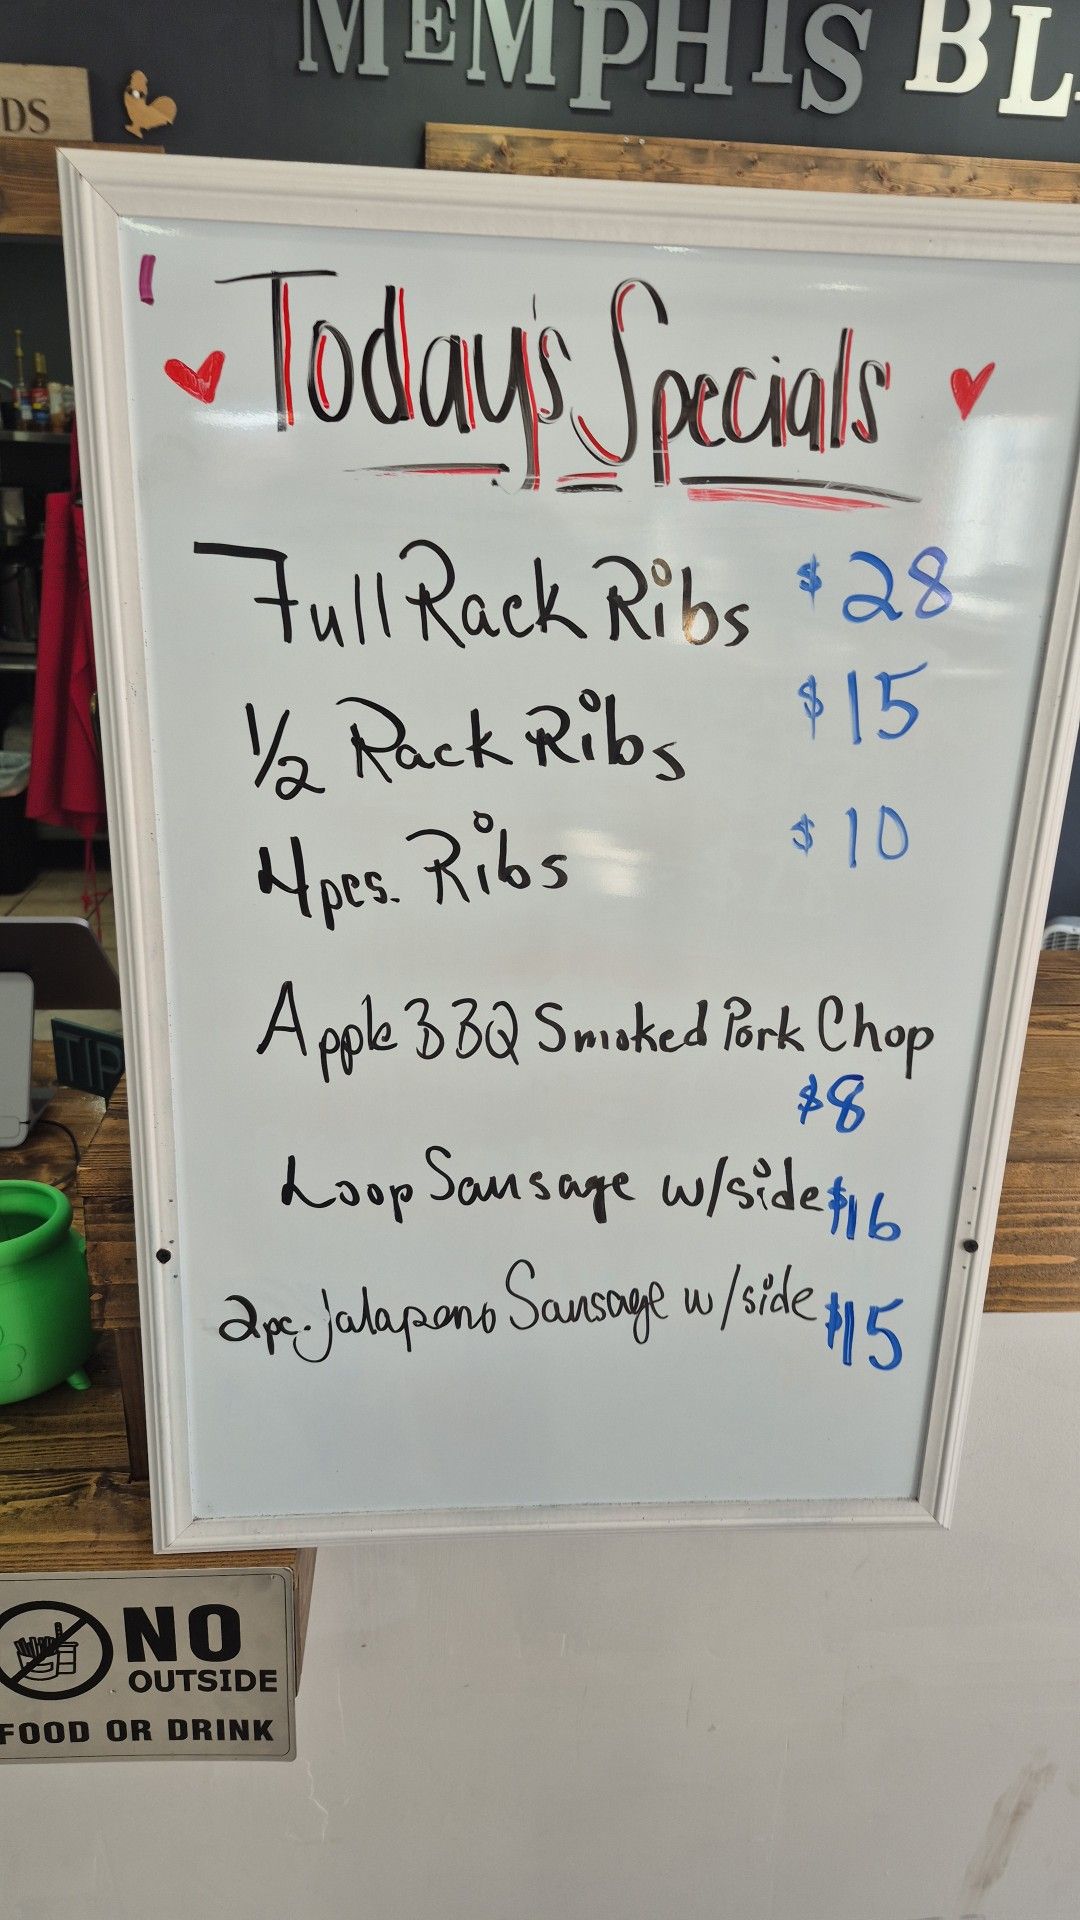 MEMPHIS BL
DS
Today's Specials
Full Rack Ribs $28
1/2 Rack Ribs $15
4pcs. Ribs $10
Apple BBQ Smoked Pork Chop
$8
Loop Sausage w/side $16
2pc. jalapeno Sausage w/side $15
TIP
NO
OUTSIDE
FOOD OR DRINK